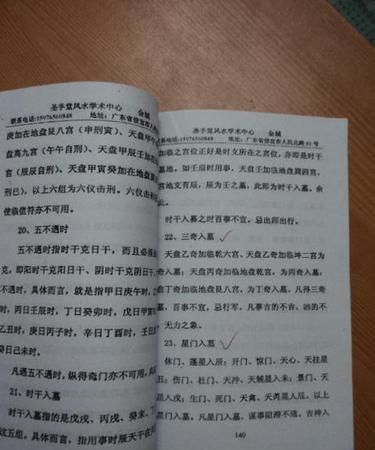 圣手堂风水学术中心 金铖
联系电话:15976560848 地址:广东省信宜市人
庚加在地盘艮八宫（申刑寅）、天盘甲
盘离九宫（午午自刑）、天盘甲辰壬加在
宫（辰辰自刑）、天盘甲寅癸加在地盘
刑巳），以上六组为六仪击刑。六仪击刑
使临值符亦不可用。
20、五不遇时
五不遇时指时干克日干，而且必须
克，即阳时干克阳日干、阴时干克阴日干
不遇时。具体而言，就是指甲日庚午时，
时、丙日壬辰时，丁日癸卯时，戊日甲寅
乙丑时，庚日丙子时，辛日丁酉时，壬日
癸日己未时。
凡遇五不遇时，纵得奇门亦不可用
21、时干入墓
时干入墓指的是戊戌、丙戌、癸未、丁
这五组。具体而言，指用事时辰天干在
圣手堂风水学术中心 金铖
联系电话:15976560848 地址:广东省信宜市人民北路 81 号
加临之宫位正好是时支所在之宫位，亦即是时干
墓地。如壬辰时用事，天盘壬加临地盘巽四宫，
宫地支有辰，辰为壬之墓，此即为时干入墓。余
此。
时干入墓之时百事不宜，忌出师出行。
22、三奇入墓
天盘乙奇加临乾六宫、天盘乙奇加临坤二宫为
奇入墓；天盘丙奇加临地盘乾宫，为丙奇入墓；
盘丁奇加临地盘艮宫，为丁奇入墓。凡得三奇
墓，百事不宜，忌行军，凡事吉的不吉，凶的不
无力之象。
23、星门入墓
休门、蓬星入辰；开门、惊门、天心、天柱星
丑；伤门、杜门、天冲、天辅星入未；景门、天
星入戌；生门、死门、天禽、天芮星入辰。以上
星门入墓。凡星门入墓，谋事阻滞不通。吉神入
140